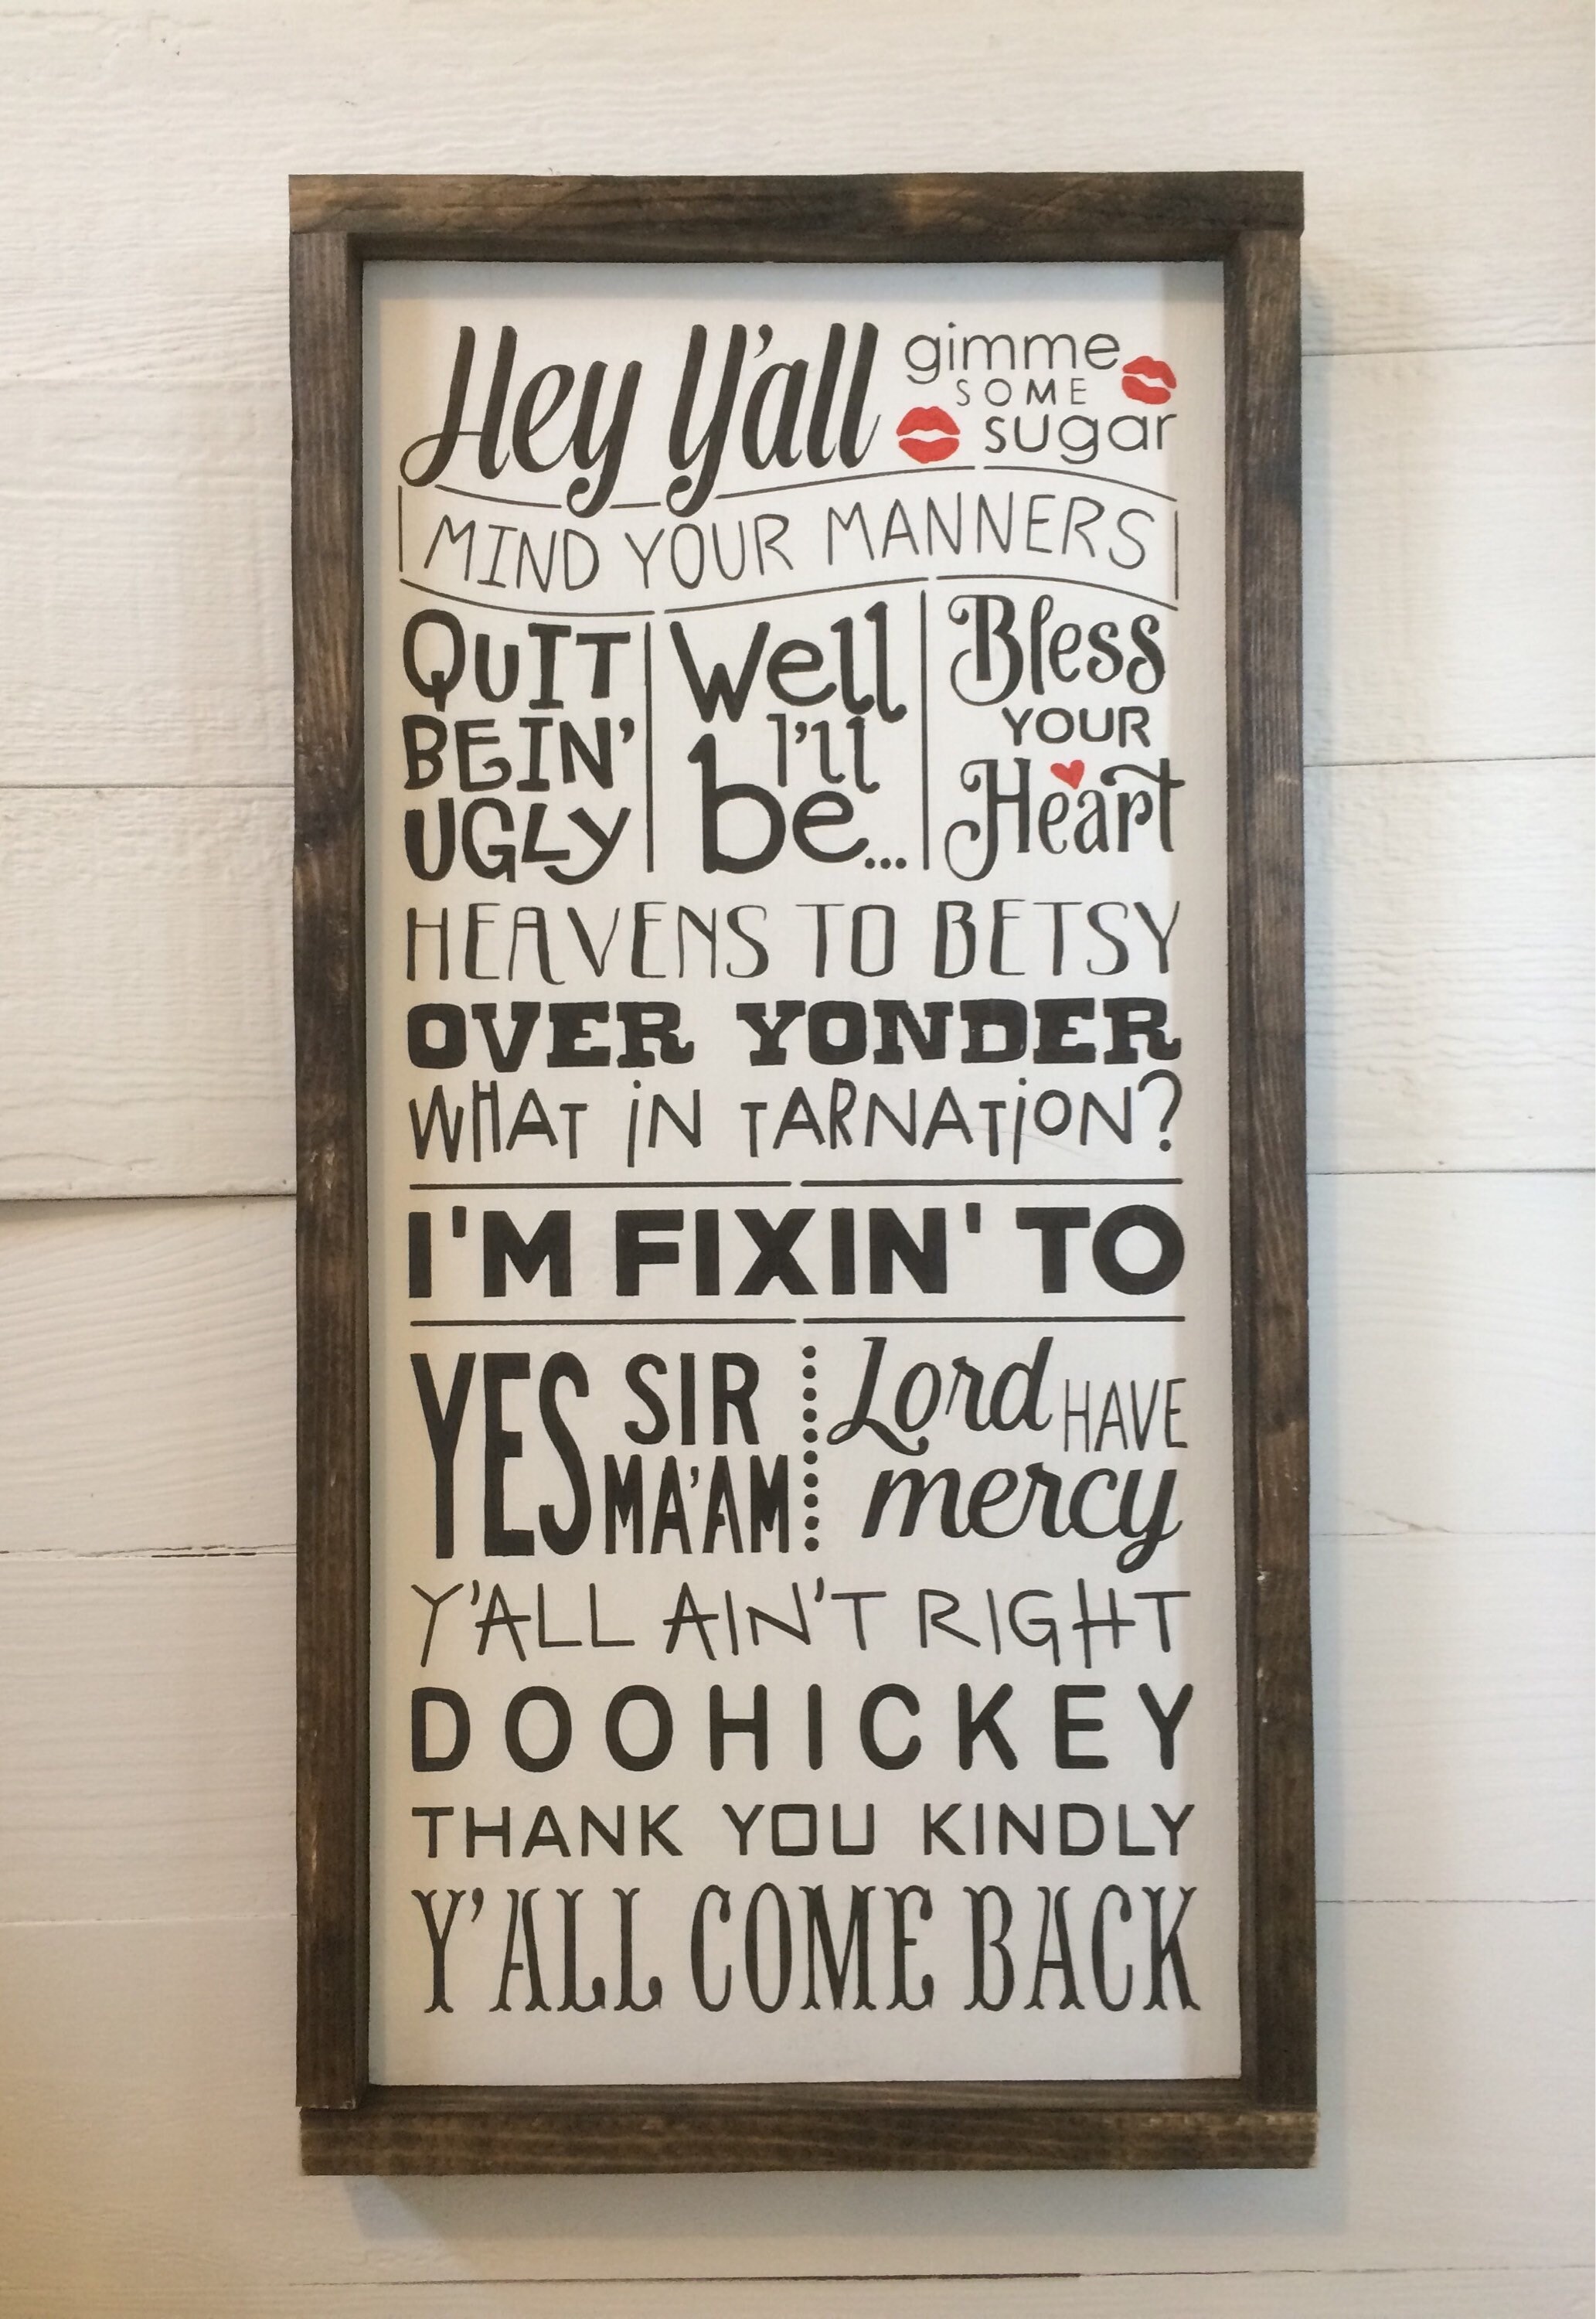 Hey Y'all
gimme
SOME
sugar
MIND YOUR MANNERS
QUIT
BEIN'
UGLY
Well
I'll
be...
Bless
YOUR
Heart
HEAVENS TO BETSY
OVER YONDER
WHAT iN TARNATiON?
I'M FIXIN' TO
YES SIR
MA'AM
Lord HAVE
mercy
Y'ALL AIN'T RIGHT
DOOHICKEY
THANK YOU KINDLY
Y'ALL COME BACK